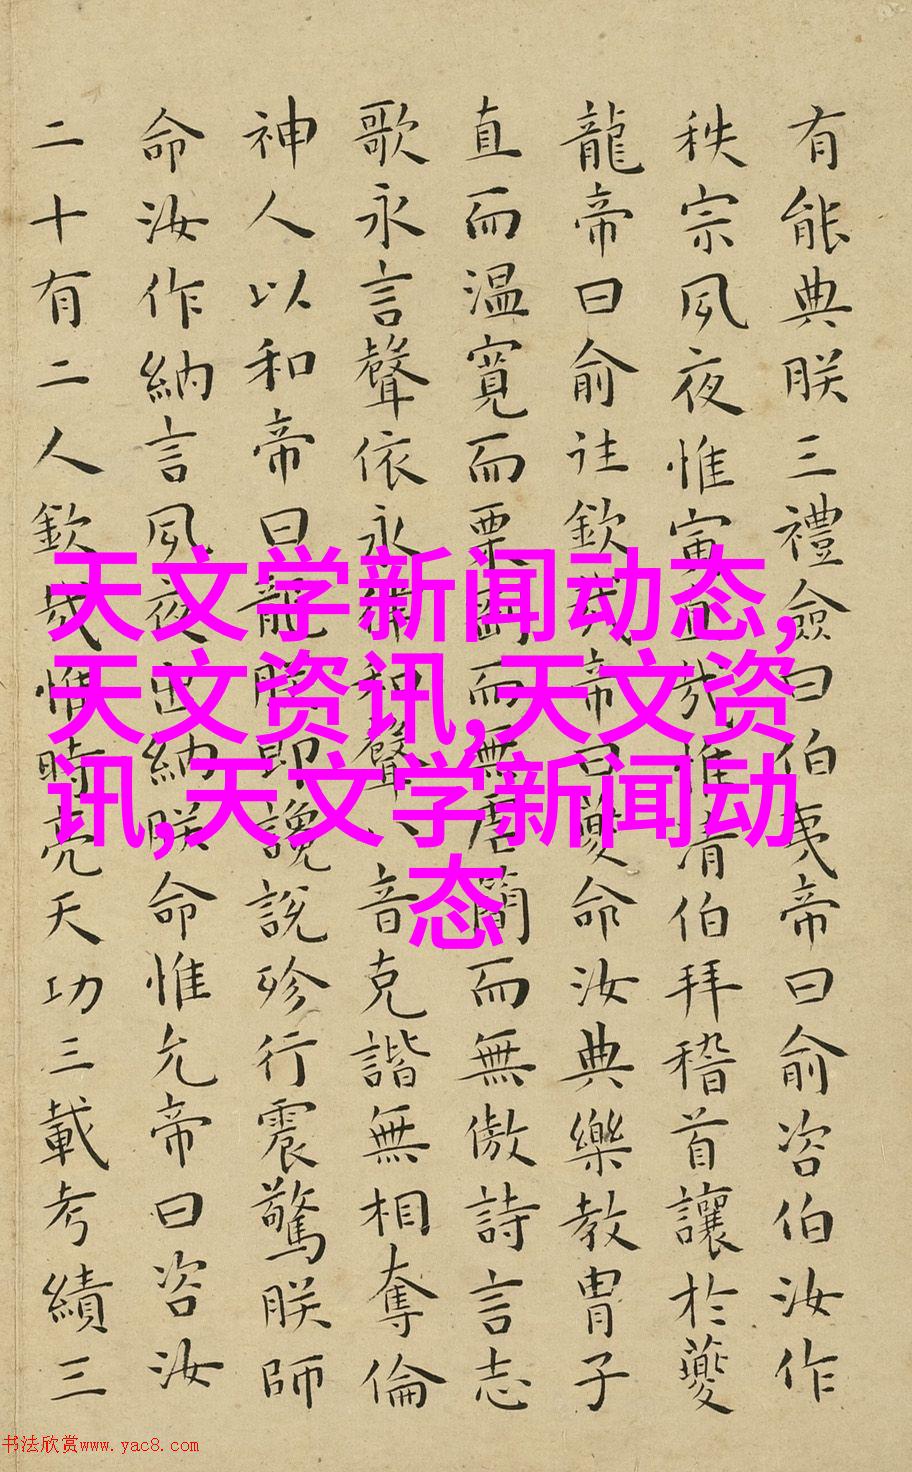 有能典朕三禮僉曰伯夷帝曰俞咨伯汝作
秩宗夙夜惟寅直哉惟清伯拜稽首讓於夔
龍帝曰俞往欽哉帝曰夔命汝典樂教冑子
直而温寬而栗剛而無虐簡而無傲詩言志
歌永言聲依永律和聲八音克諧無相奪倫
神人以和帝曰龍朕堲讒說殄行震驚朕師
命汝作納言夙夜出納朕命惟允帝曰咨汝
二十有二人欽哉惟時亮天功三載考績三
天文学新闻动态,
天文资讯,天文资
讯,天文学新闻动
态
书法欣赏www.yac8.com